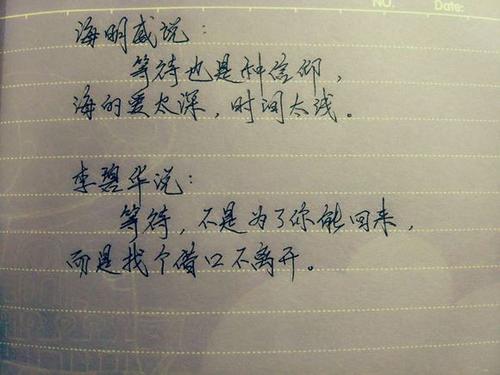 NO. Date:
海明威说：
等待也是种信仰，
海的爱太深，时间太浅。
李碧华说：
等待，不是为了你能回来，
而是找个借口不离开。